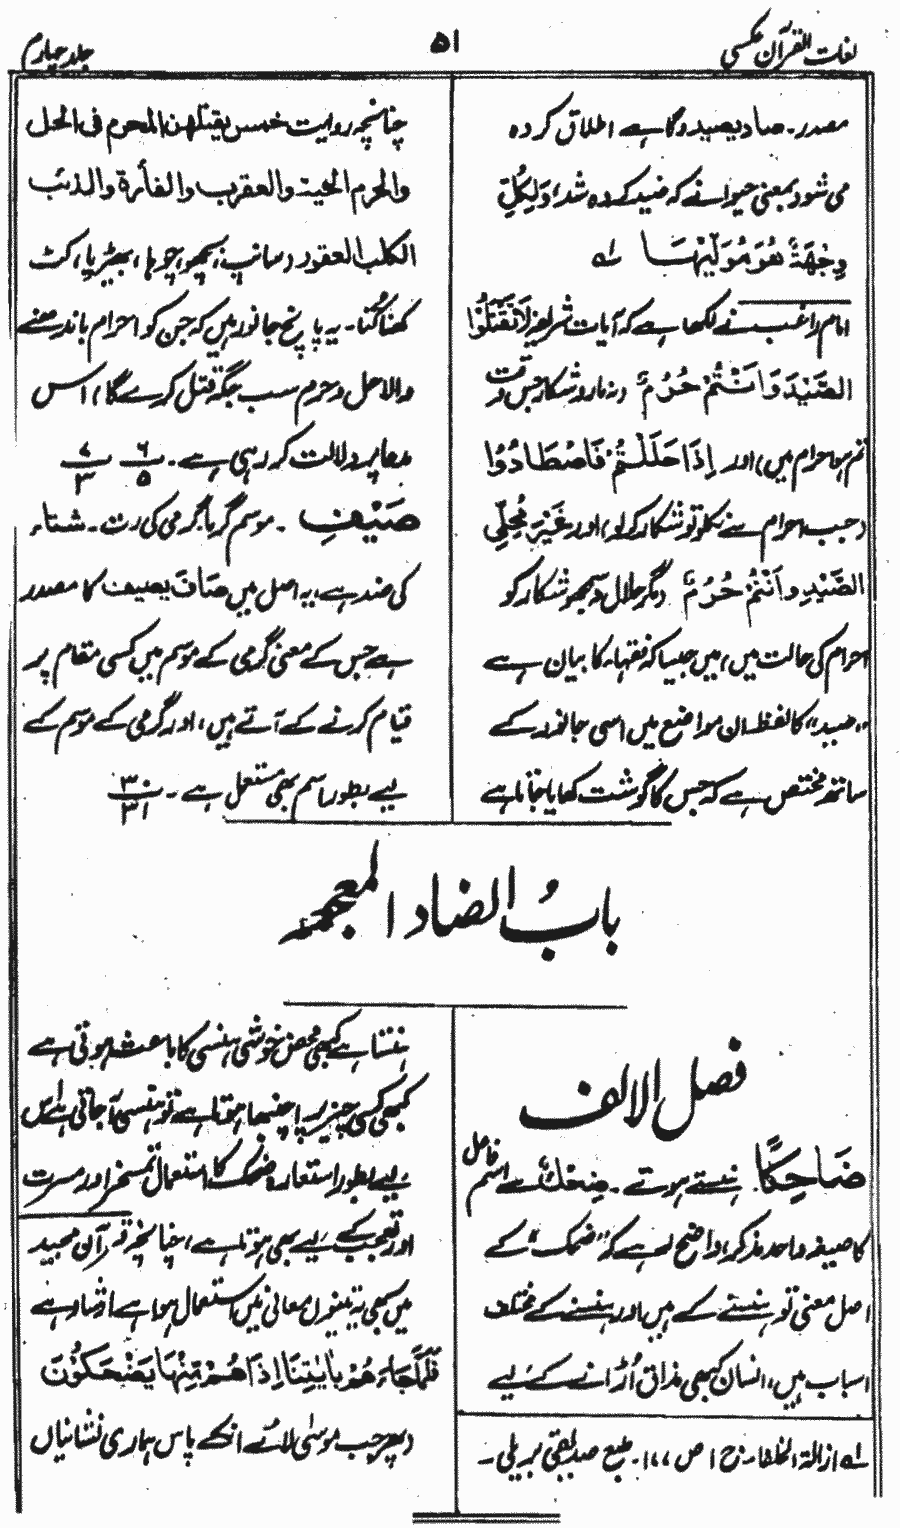 لغات القرآن عکسی
۵۱
جلد چہارم
مصدر۔ صاد یصید وگاہے اطلاق کردہ
می شود بمعنی حیوانے کہ صید کردہ شد، وَلِکُلٍّ
وِجْهَةٌ هُوَ مُوَلِّيْهَا لہ
امام راغب نے لکھا ہے کہ آیات شریفہ لَا تَقْتُلُوْا
الصَّيْدَ وَاَنْتُمْ حُرُمٌ (نہ مارو شکار جس وقت
تم ہو احرام میں) اور اِذَا حَلَلْتُمْ فَاصْطَادُوْا
(جب احرام سے نکلو تو شکار کرلو) اور غَيْرَ مُحِلِّي
الصَّيْدِ وَاَنْتُمْ حُرُمٌ (مگر حلال نہ سمجھو شکار کو
احرام کی حالت میں) میں جیسا کہ فقہاء کا بیان ہے
"صید" کا لفظ ان مواضع میں اسی جانور کے
ساتھ مختص ہے کہ جس کا گوشت کھایا جاتا ہے
چنانچہ روایت خمس یقتلهن المحرم فی الحل
والحرم الحیة والعقرب والفأرة والذئب
الکلب العقور (سانپ، بچھو، چوہا، بھیڑیا، کٹ
کھنا کتا۔ یہ پانچ جانور ہیں کہ جن کو احرام باندھنے
والا حل وحرم سب جگہ قتل کرے گا) اس
مدعا پر دلالت کر رہی ہے۔ ۶/۵ ۷/۳
صَیْفِ ۔ موسم گرما گرمی کی رت۔ شتاء
کی ضد ہے، یہ اصل میں صَافَ یصیف کا مصدر
ہے جس کے معنی گرمی کے موسم میں کسی مقام پر
قیام کرنے کے آتے ہیں، اور گرمی کے موسم کے
لیے بطور اسم بھی مستعمل ہے ۔ ۳۰/۳۱
بابُ الضاد المعجمۃ
فصل الالف
ضَاحِکًا ہنستے ہوتے ۔ ضِحْكٌ سے اسم فاعل
کا صیغہ واحد مذکر، واضح ہے کہ "ضحک" کے
اصل معنی تو ہنسنے کے ہیں اور ہنسنے کے مختلف
اسباب ہیں، انسان کبھی مذاق اُڑانے کے لیے
لہ ازالۃ الخلفاء ج ۱ ص ۱۷۷۔ طبع صدیقی بریلی ۔
ہنستا ہے کبھی محض خوشی ہنسی کا باعث ہوتی ہے
کبھی کسی چیز پر اچنبھا ہوتا ہے تو ہنسی آجاتی ہے اس
لیے بطور استعارہ ضحک کا استعمال تمسخر اور مسرت
اور تعجب کے لیے بھی ہوتا ہے، چنانچہ قرآن مجید
میں بھی یہ تینوں معانی میں استعمال ہوا ہے ارشاد ہے
فَلَمَّا جَاءَهُمْ بِاٰيٰتِنَا اِذَا هُمْ مِّنْهَا يَضْحَكُوْنَ
(پھر جب موسیٰ لائے انکے پاس ہماری نشانیاں